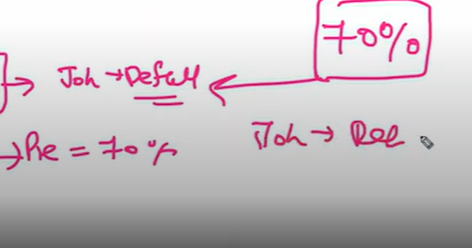 70%
Joh → Defall
→ Pre = 70%
Joh → Def